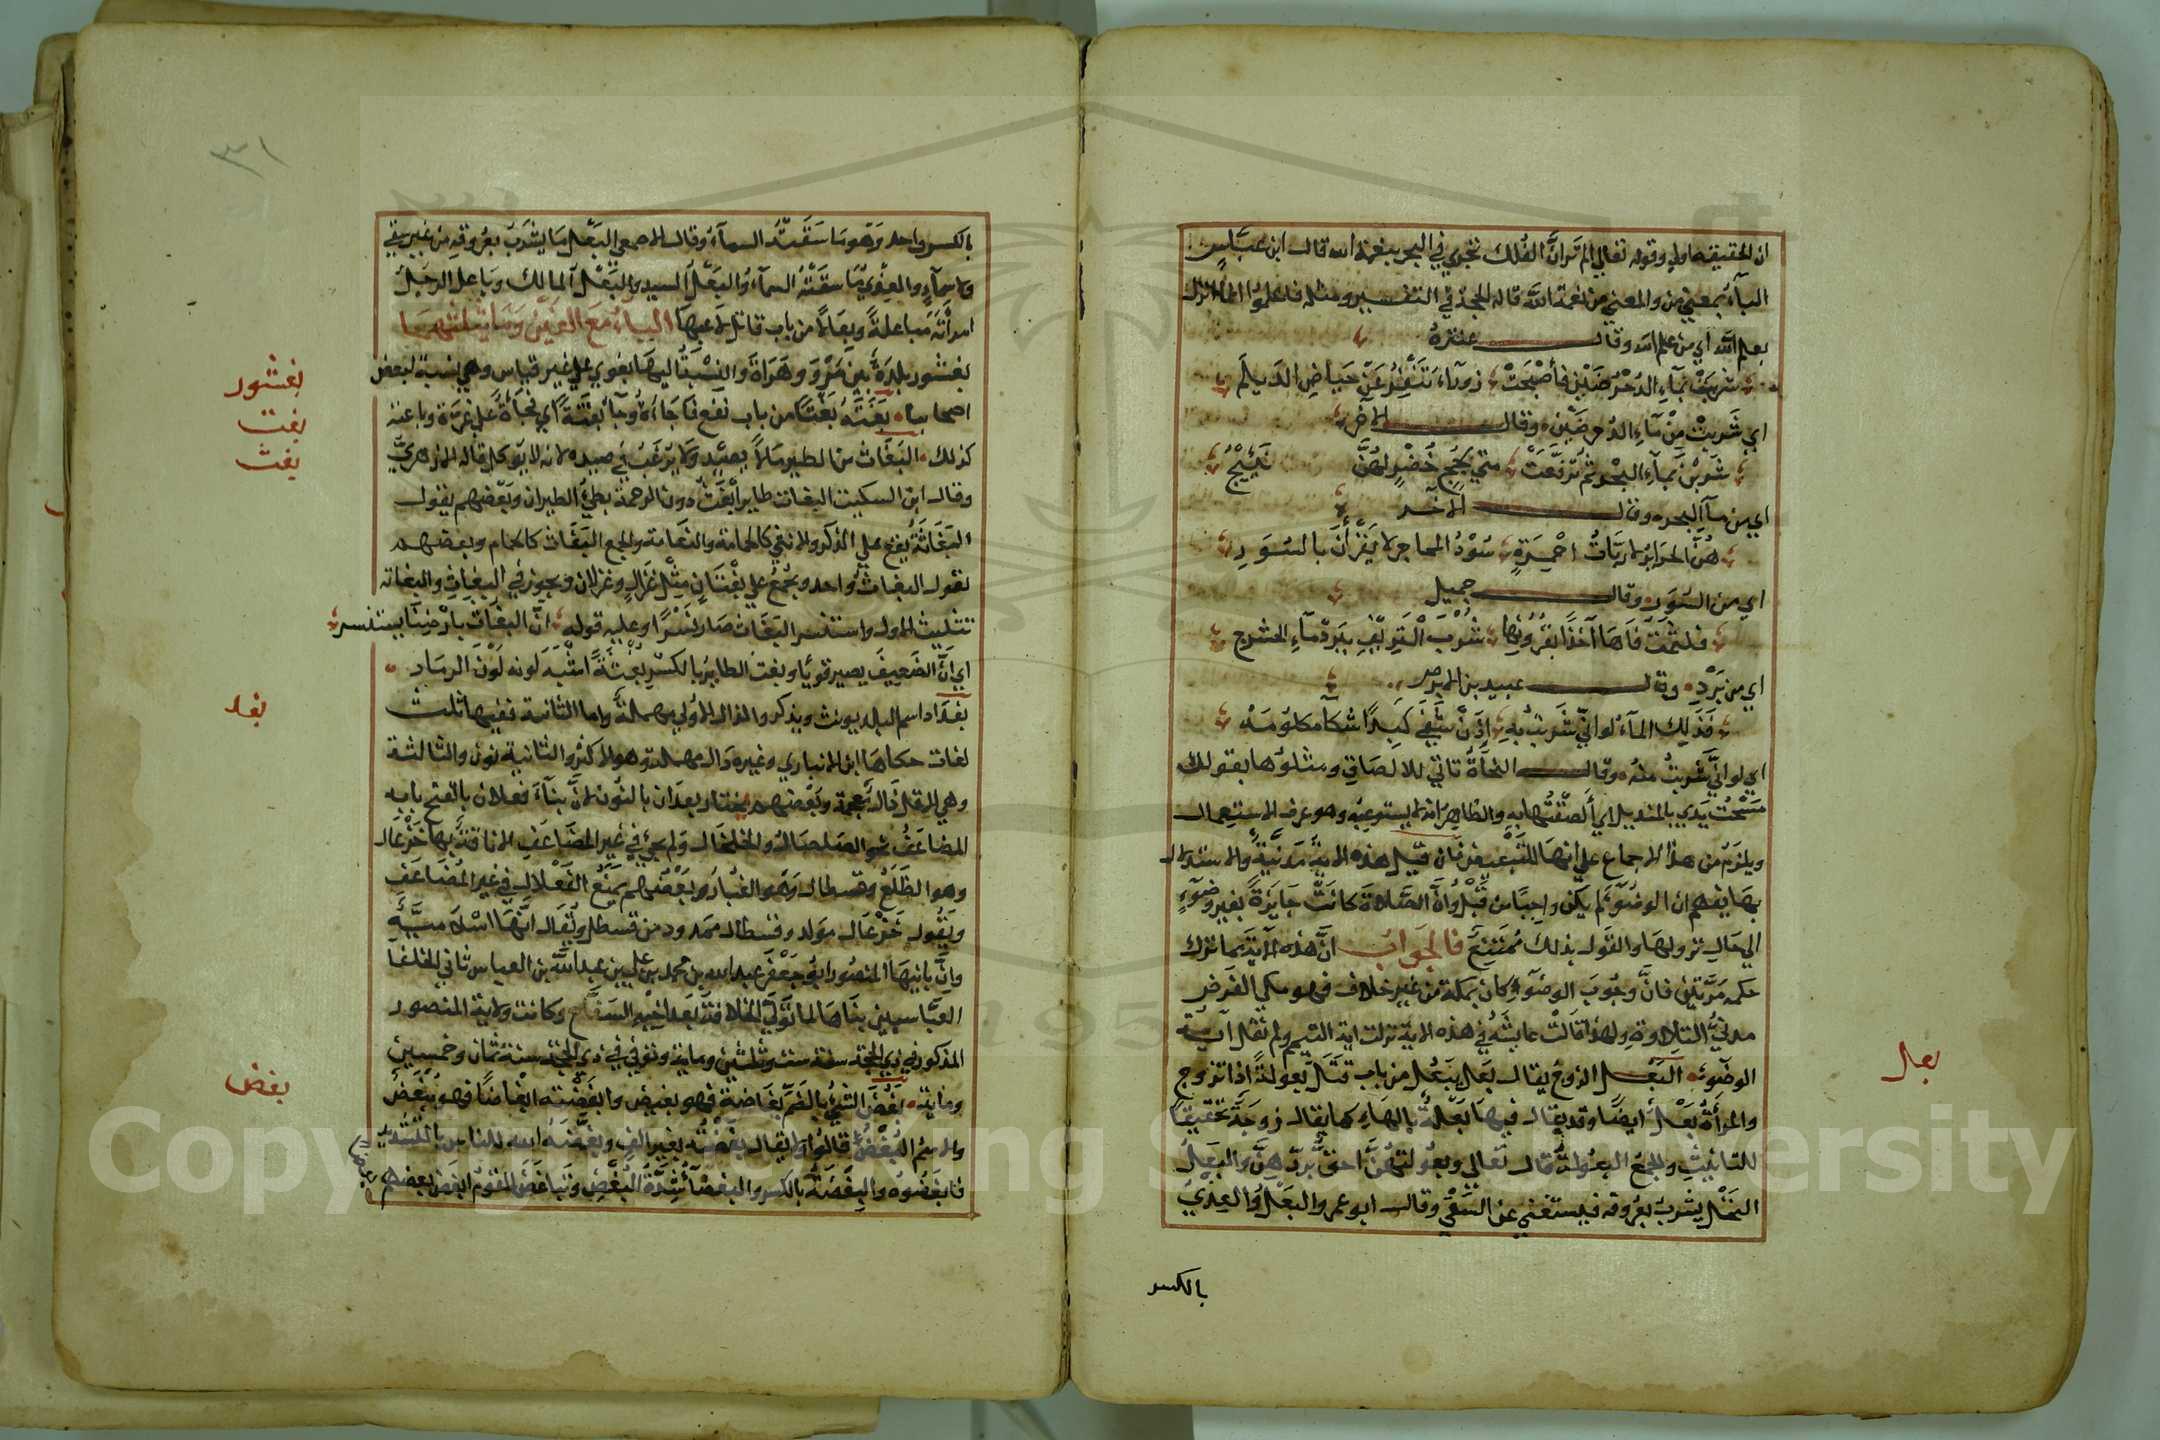 ان الحقيقة اولى وقوله تعالى الم تر ان الفلك تجري في البحر بنعمة الله قال ابن عباس
الباء بمعنى من والمعنى من نعمة الله قاله الحجة في التفسير ومثله فاعلموا انما انزل
بعلم الله اي من علم الله وقال عنترة
شربت بماء الدحرضين فأصبحت زوراء تنفر عن حياض الديلم
اي شربت من ماء الدحرضين وقال الآخر
شربن بماء البحر ثم ترفعت متى لجج خضر لهن نئيج
اي من ماء البحر وقال الآخر
هن الحرائر لا ربات احمرة سود المحاجر لا يقرأن بالسور
اي من السور وقال جميل
فلثمت فاها آخذا بقرونها شرب النزيف ببرد ماء الحشرج
اي من برد وقال عبيد بن الابرص
فذلك الماء لو اني شربت به اذن شفى كبدا شكاء مكلومه
اي لو اني شربت منه وقال النحاة تاتي للالصاق ومثلوها بقولك
مسحت يدي بالمنديل اي ألصقتها به والظاهر انه لا يستوعبه وهو عرف الاستعمال
ويلزم من هذا الاجماع على انها للتبعيض فان قيل هذه الاية مدنية والاستدلال
بها يفهم ان الوضوء لم يكن واجبا من قبل وان الصلاة كانت جايزة بغير وضوء
الى حال نزولها والقول بذلك ممتنع فالجواب ان هذه الاية مما نزل
حكمه مرتين فان وجوب الوضوء كان بمكة من غير خلاف فهو مكي الفرض
مدني التلاوة ولهذا قالت عايشة في هذه الاية نزلت اية التيمم ولم تقل آية
الوضوء البعل الزوج يقال بعل يبعل من باب قتل بعولة اذا تزوج
والمرأة بعل ايضا وقد يقال فيها بعلة بالهاء كما يقال زوجة تحقيقا
للتانيث والجمع البعولة قال تعالى وبعولتهن احق بردهن والبعل
النخل يشرب بعروقه فيستغني عن السقي وقال ابو عمرو البعل والعذي
بالكسر
بعل
بالكسر واحد وهو ما سقته السماء وقال الاصمعي البعل ما يشرب بعروقه من غير سقي
ولا سماء والعذي ما سقته السماء والبعل السيد والبعل المالك وباعل الرجل
امرأته مباعلة وبعالا من باب قاتل لاعبها الباء مع الغين وما يثلثهما
بغشور بلدة بين مرو وهراة والنسبة اليها بغوي على غير قياس وهي نسبة لبعض
اصحابنا بغته بغتا من باب نفع فاجأه وجاء بغتة اي فجأة على غرة وباغته
كذلك البغاث من الطير ما لا يصيد ولا يرغب في صيده لانه لا يوكل قاله الازهري
وقال ابن السكيت البغاث طاير ابغث دون الرخمة بطيء الطيران وبعضهم يقول
البغاثة يقع على الذكر والانثى كالحمامة والنعامة والجمع البغاث كالحمام وبعضهم
يقول البغاث واحد ويجمع على بغثان مثل غزال وغزلان ويجوز في البغاث والبغاثة
تثليث الاول واستنسر البغاث صار نسرا وعليه قوله ان البغاث بارضنا يستنسر
اي ان الضعيف يصير قويا وبغث الطاير بالكسر بغثة اشبه لونه لون الرماد
بغداد اسم البلد يونث ويذكر والدال الاولى مهملة واما الثانية ففيها ثلث
لغات حكاها ابن الانباري وغيره دال مهملة وهو الاكثر والثانية نون والثالثة
وهي الاقل ذال معجمة وبعضهم يختار بغدان بالنون لان بناء فعلال بالفتح بابه
المضاعف نحو الصلصال والخلخال ولم يجئ في غير المضاعف الا ناقة بها خزعال
وهو الظلع وقسطال وهو الغبار وبعضهم يمنع الفعلال في غير المضاعف
ويقول خزعال مولد وقسطال ممدود من قسطل ويقال انها اسلامية
وان بانيها المنصور ابو جعفر عبد الله بن محمد بن علي بن عبد الله بن العباس ثاني الخلفا
العباسيين بناها لما تولى الخلافة بعد اخيه السفاح وكانت ولاية المنصور
المذكور في ذي الحجة سنة ست وثلثين وماية وتوفي في ذي الحجة سنة ثمان وخمسين
وماية بغض الشيء بالضم بغاضة فهو بغيض وابغضته ابغاضا فهو مبغض
والاسم البغض قالوا ولا يقال بغضته بغير الف وبغضه الله للناس بالتشديد
فابغضوه والبغضة بالكسر والبغضاء شدة البغض وتباغض القوم ابغض بعضهم
بعضا
بغشور
بغت
بغث
بغد
بغض
٣١
Copyright © King Saud University
195